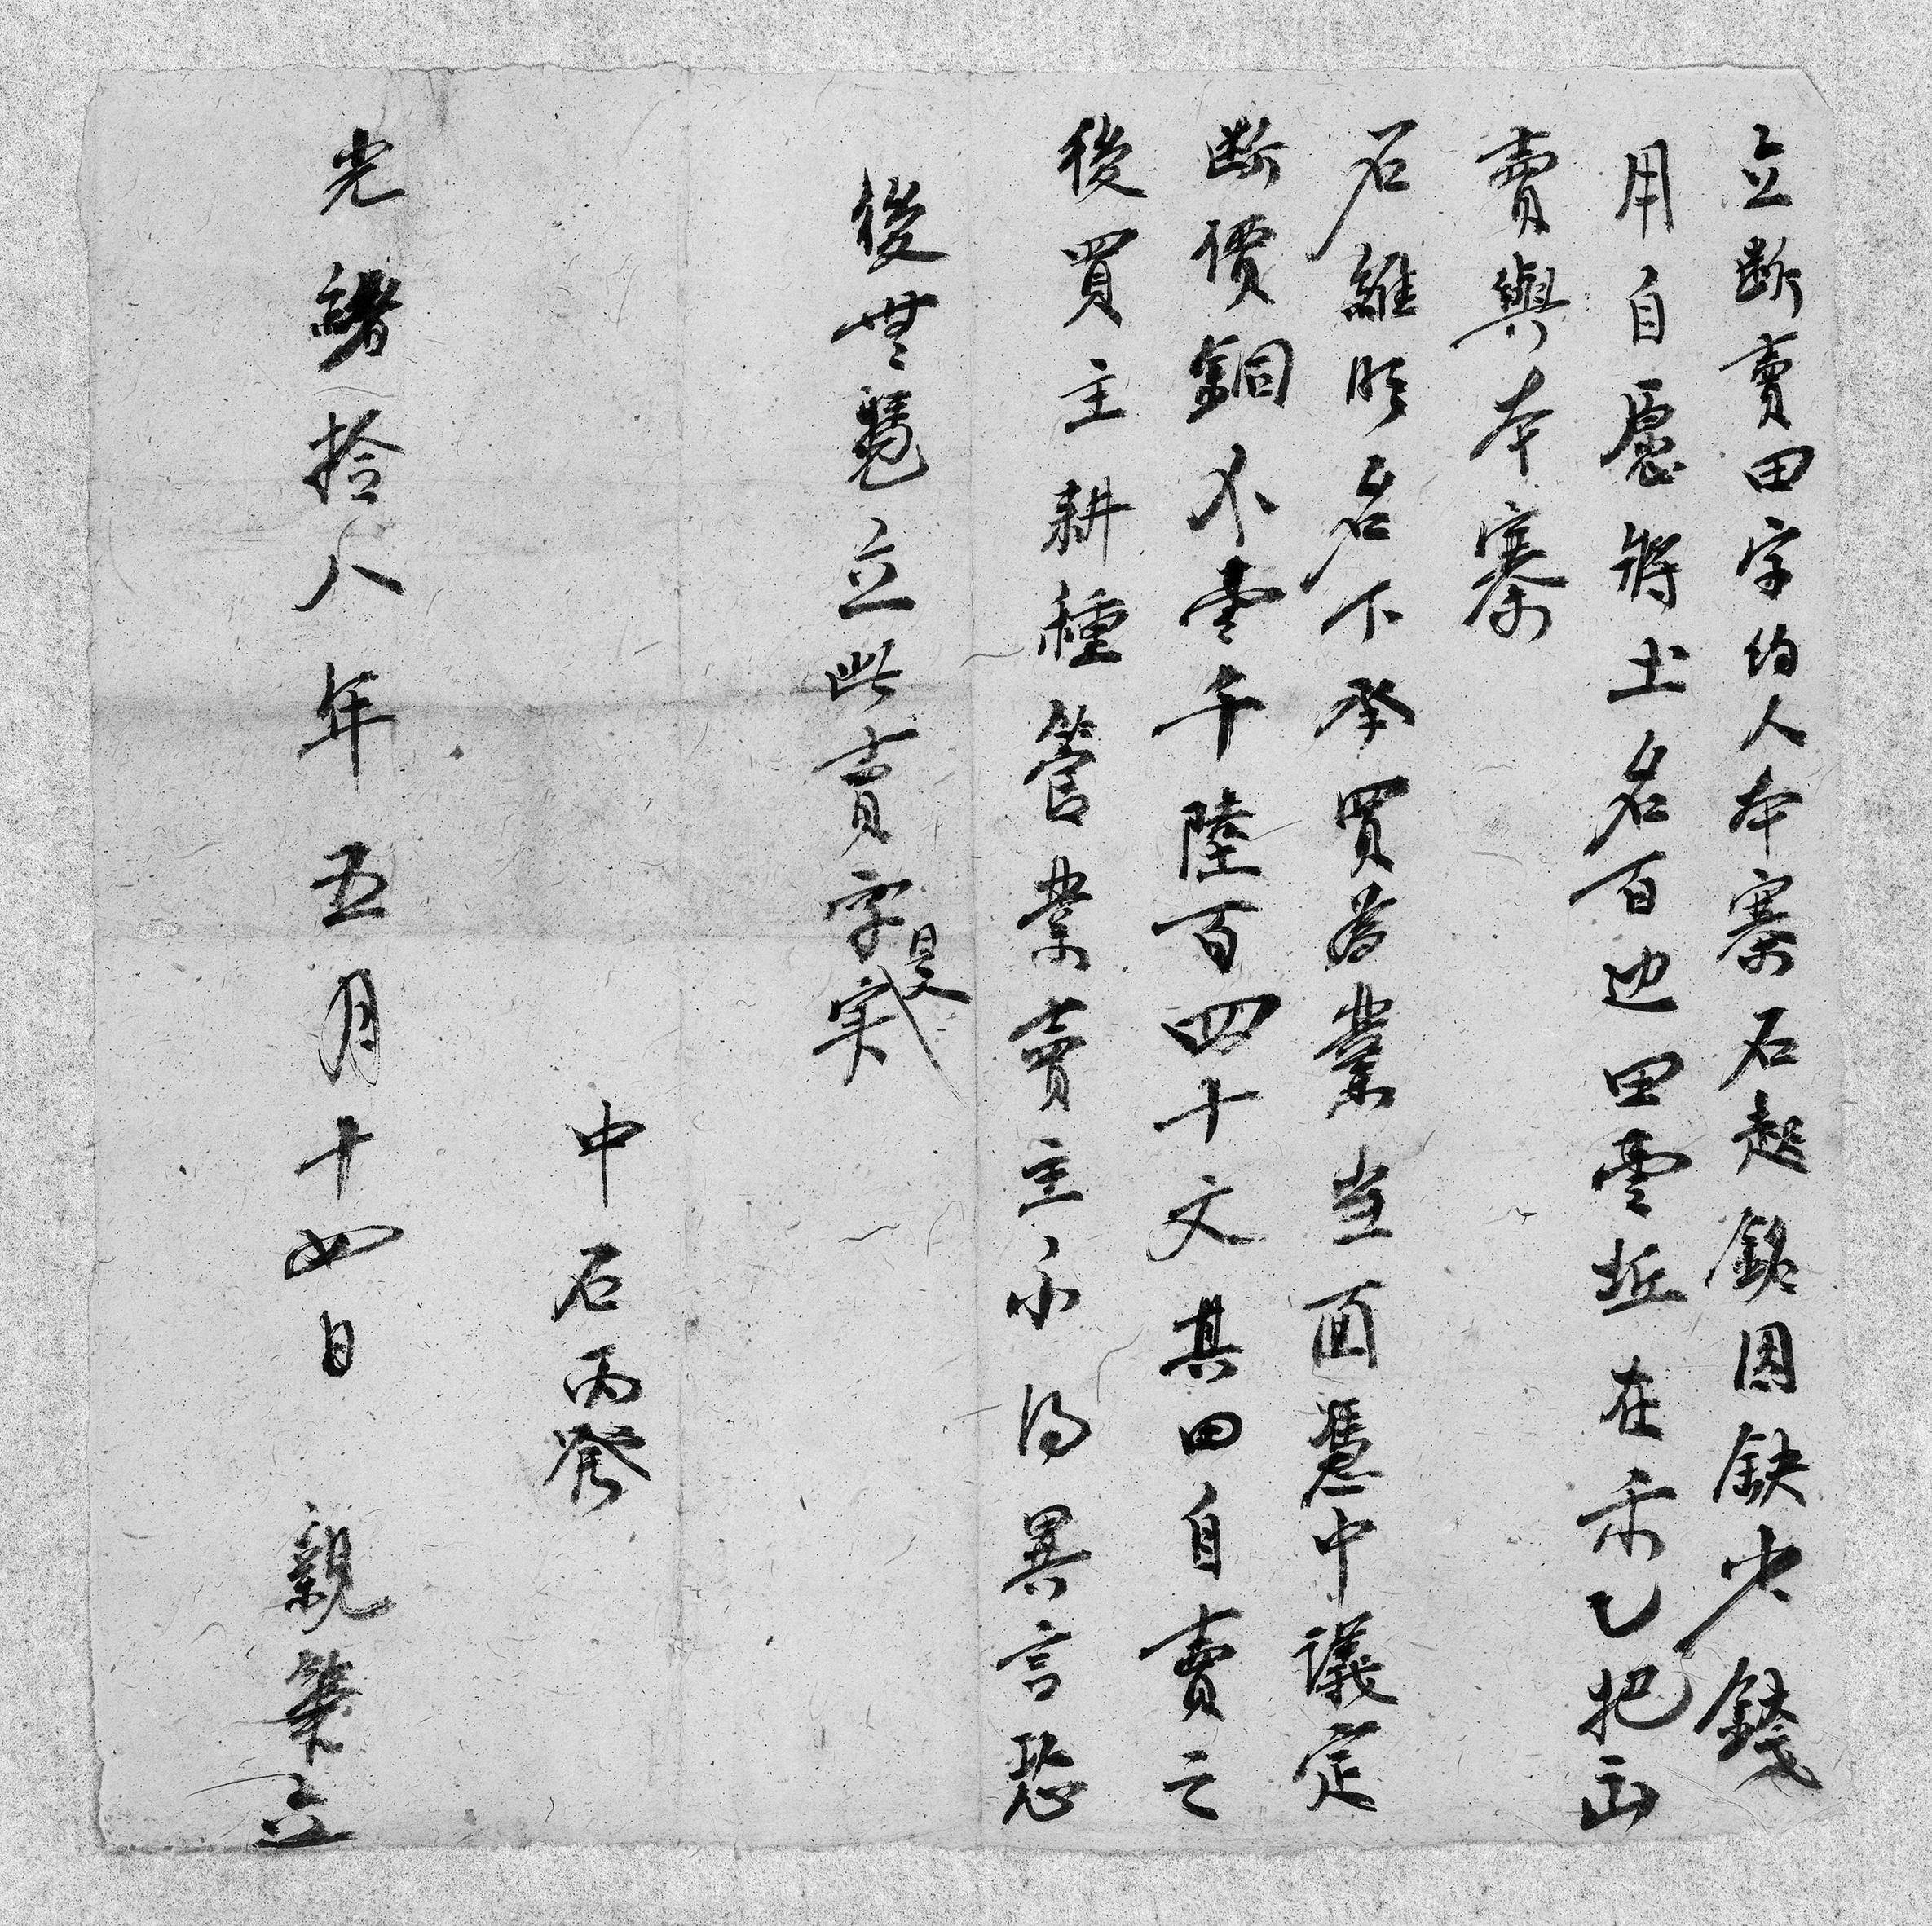 立断賣田字約人本寨石起銘因缺少錢
用自愿將土名百边田壹坵在禾乙把正
賣與本寨
石維明名下承買為業当面憑中議定
断價銅不壹千陸百四十文其田自賣之
後買主耕種管業賣主不得異言恐
後無憑立此賣字是実
中石丙發
光緒拾八年五月十四日 親筆立